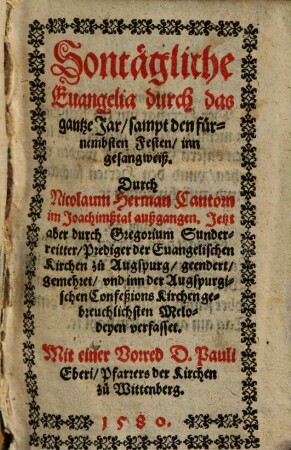 Sontägliche
Euangelia durch das
gantze Jar/sampt den für-
nembsten Festen/inn
gesangweiß.
Durch
Nicolaum Herman Cantorn
im Joachimßtal außgangen. Jetzt
aber durch Gregorium Sunder-
reitter/Prediger der Euangelischen
Kirchen zů Augspurg/geendert/
gemehret/vnd inn der Augspurgi-
schen Confeßions Kirchen ge-
breuchlichsten Melo-
deyen verfasset.
Mit einer Vorred D. Pauli
Eberi/Pfarrers der Kirchen
zů Wittenberg.
1580.